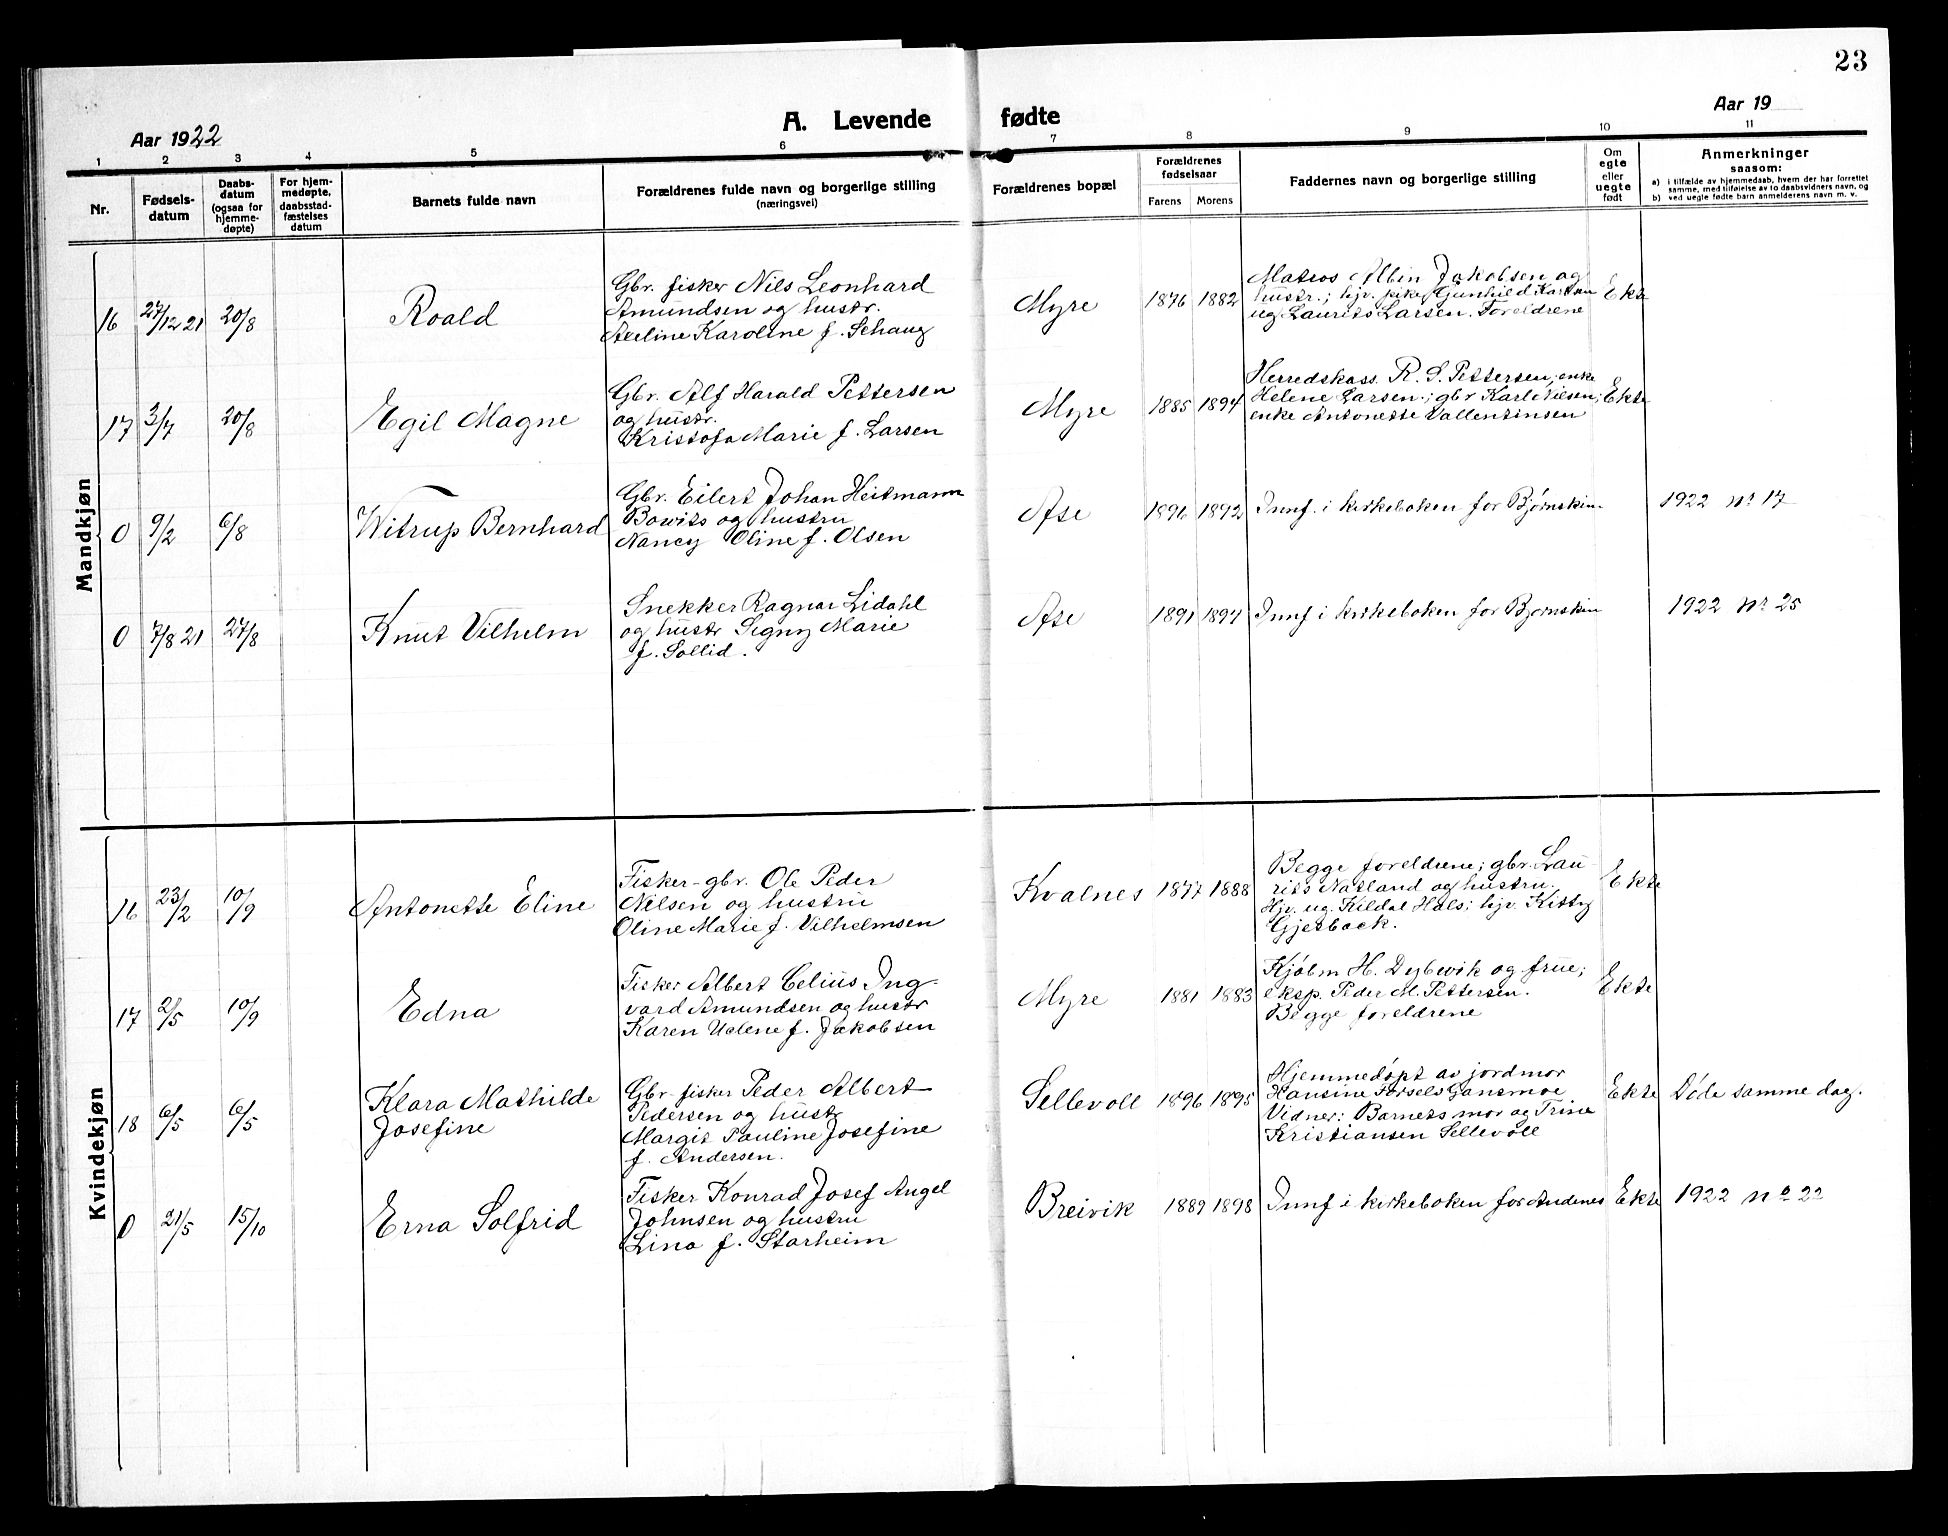 23
Aar 1922
A. Levende fødte
Aar 19
1 2 3 4 5 6 7 8 9 10 11
Nr.
Fødsels-
datum
Daabs-
datum
(ogsaa for
hjemme-
døpte)
For hjem-
medøpte,
daabsstad-
fæstelses
datum
Barnets fulde navn
Forældrenes fulde navn og borgerlige stilling
(næringsvei)
Forældrenes bopæl
Forældrenes
fødselsaar
Farens Morens
Faddernes navn og borgerlige stilling
Om
egte
eller
uegte
født
Anmerkninger
saasom:
a) i tilfælde av hjemmedaab, hvem der har forrettet
samme, med tilføielse av to daabsvidners navn, og
b) ved uegte fødte barn anmelderens navn m. v.
Mandkjøn
16 27/12 21 20/8
Roald
Gbr. fisker Nils Leonhard
Amundsen og hustr.
Karoline f. Schaug
Myre
1876 1882
Matros Albin Jakobsen og
hustr.; hjv. pike Gunhild Karlsen
ug Laurits Larsen. Foreldrene
Ekte
17 3/7 20/8
Egil Magne
Gbr. Alf Harald Pettersen
og hustr.
Kristofa Marie f. Larsen
Myre
1885 1894
Herredskass. R. S. Pettersen; enke
Helene Larsen; gbr Karl Nilsen;
enke Antonette Vallentinsen
Ekte
0 9/2 6/8
Witrup Bernhard
Gbr. Eilert Johan Heitmann
Bowits og hustru
Nancy Oline f. Olsen
Åse
1896 1892
Innf. i kirkeboken for Bjørnskin
1922 nr 17
0 7/8 21 27/8
Knut Vilhelm
Snekker Ragnar Lidahl
og hustr Signy Marie
f. Sollid.
Åse
1891 1897
Innf i kirkeboken for Bjørnskin
1922 nr 25
Kvindekjøn
16 23/2 10/9
Antonette Eline
Fisker-gbr. Ole Peder
Nilsen og hustru
Oline Marie f. Vilhelmsen
Kvalnes
1877 1888
Begge foreldrene; gbr. Lau
rits Natland og hustru.
Hjv. ug. Kildal Hals; hjv. Kitty
Gjesbaek.
Ekte
17 2/5 10/9
Edna
Fisker Albert Celius Ing-
vard Amundsen og hustr
Karen f. Jakobsen
Myre
1881 1883
Kjøbm H. Dybwik og frue;
eksp. Peder M. Pettersen.
Begge foreldrene
Ekte
18 6/5 6/5
Klara Mathilde
Josefine
Gbr. fisker Peder Albert
Pedersen og hustr
Margit Pauline Josefine
f. Andersen.
Sellevoll
1896 1895
Hjemmedøpt av jordmor
Hansine Gansmoe
Vidner: Barnets mor og Trine
Kristiansen Sellevoll
Ekte
Døde samme dag.
0 21/5 15/10
Erna Solfrid
Fisker Konrad Josef Angel
Johnsen og hustru
Lina f. Starheim
Breivik
1889 1898
Innf i kirkeboken for Andenes
Ekte
1922 no 22